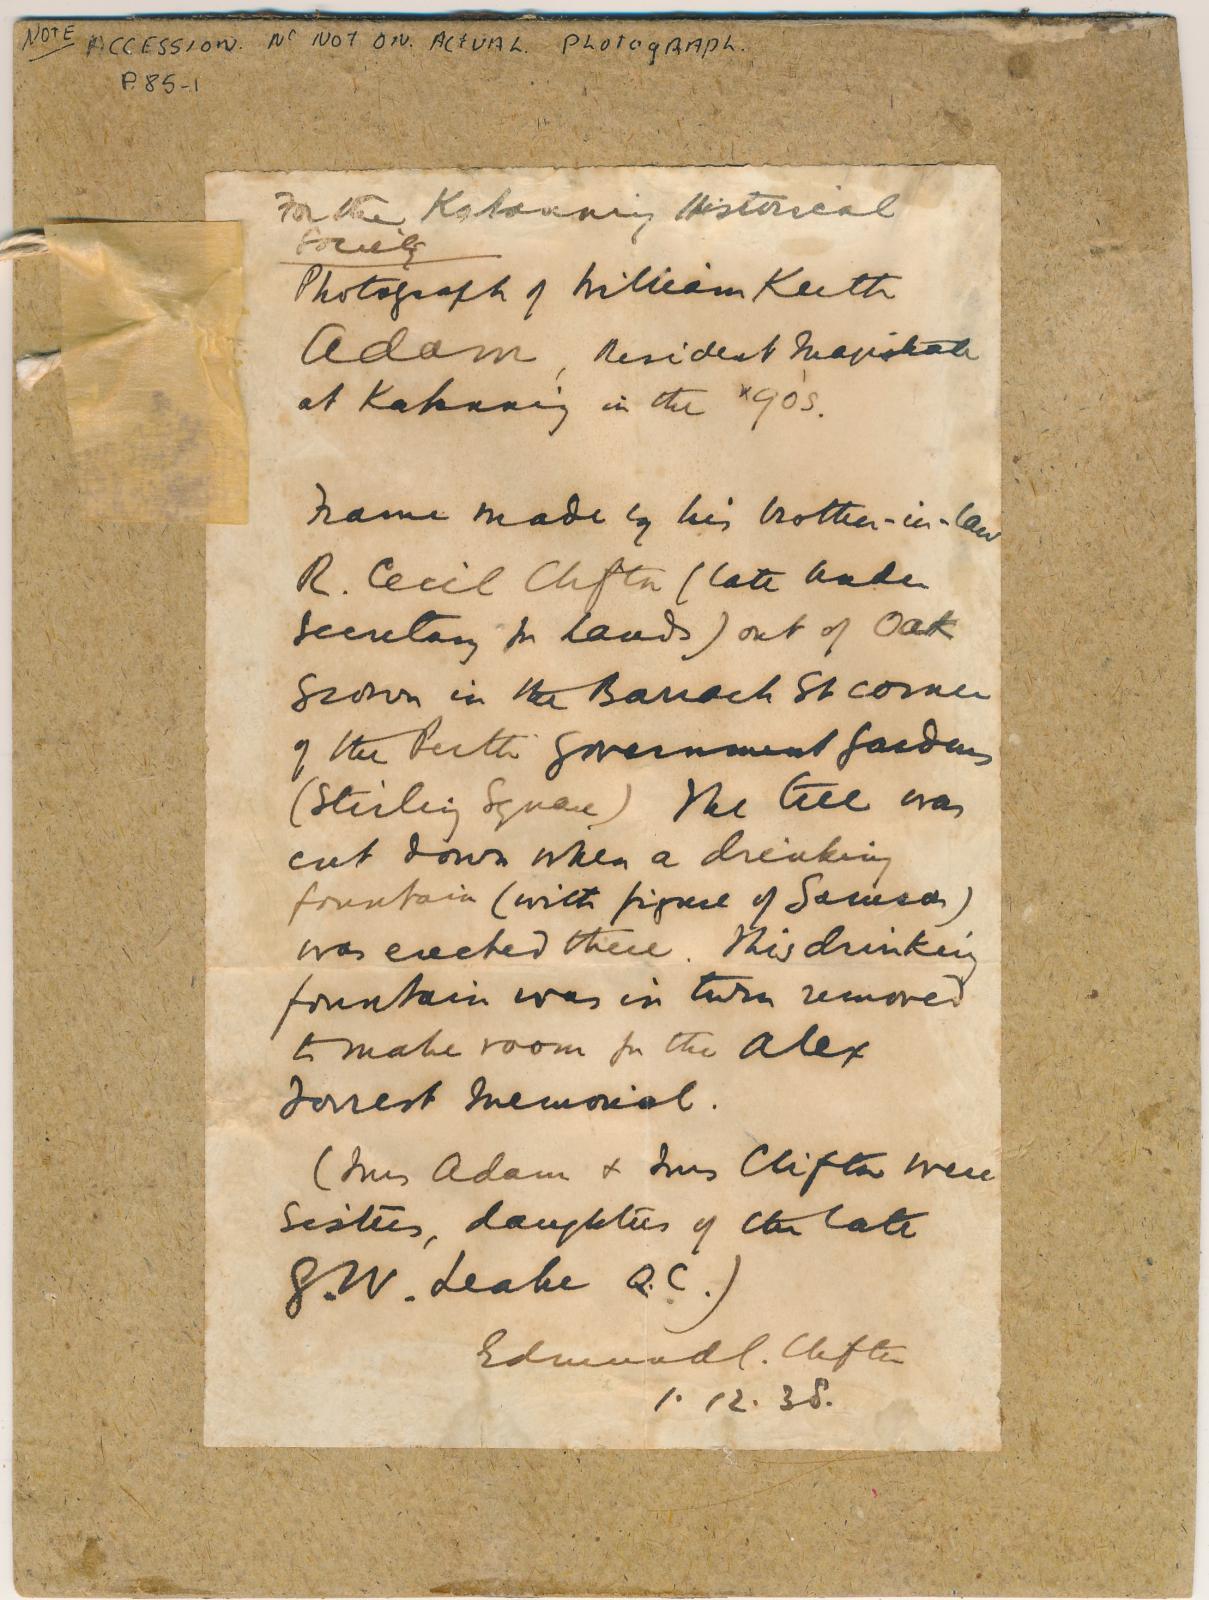 NOTE ACCESSION. No NOT ON. ACTUAL. PHOTOGRAPH.
P.85-1
For the Katanning Historical
Society
Photograph of William Keith
Adam, Resident Magistrate
at Katanning in the '90's.
Frame made by his brother-in-law
R. Cecil Clifton (late Under
Secretary for Lands) out of Oak
grown in the Barrack St corner
of the Perth Government Gardens
(Stirling Square) The tree was
cut down when a drinking
fountain (with figure of Samson)
was erected there. This drinking
fountain was in turn removed
to make room for the Alex
Forrest Memorial.
(Mrs Adam & Mrs Clifton were
Sisters, daughters of the late
G.W. Leake Q.C.)
Edmund C. Clifton
1.12.38.